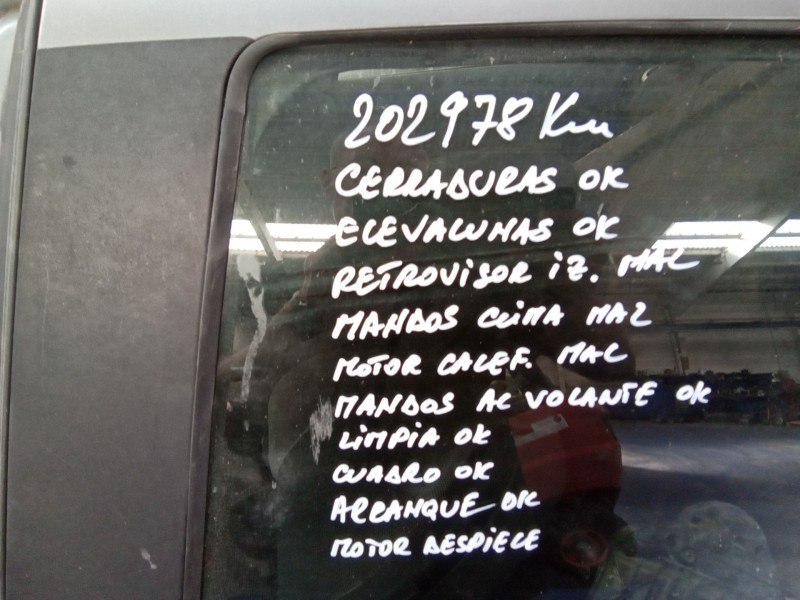 202978 Km
CERRADURAS OK
ELEVALUNAS OK
RETROVISOR iZ. MAL
MANDOS CLIMA MAL
MOTOR CALEF. MAL
MANDOS AL VOLANTE OK
LIMPIA OK
CUADRO OK
ARRANQUE OK
MOTOR DESPIECE